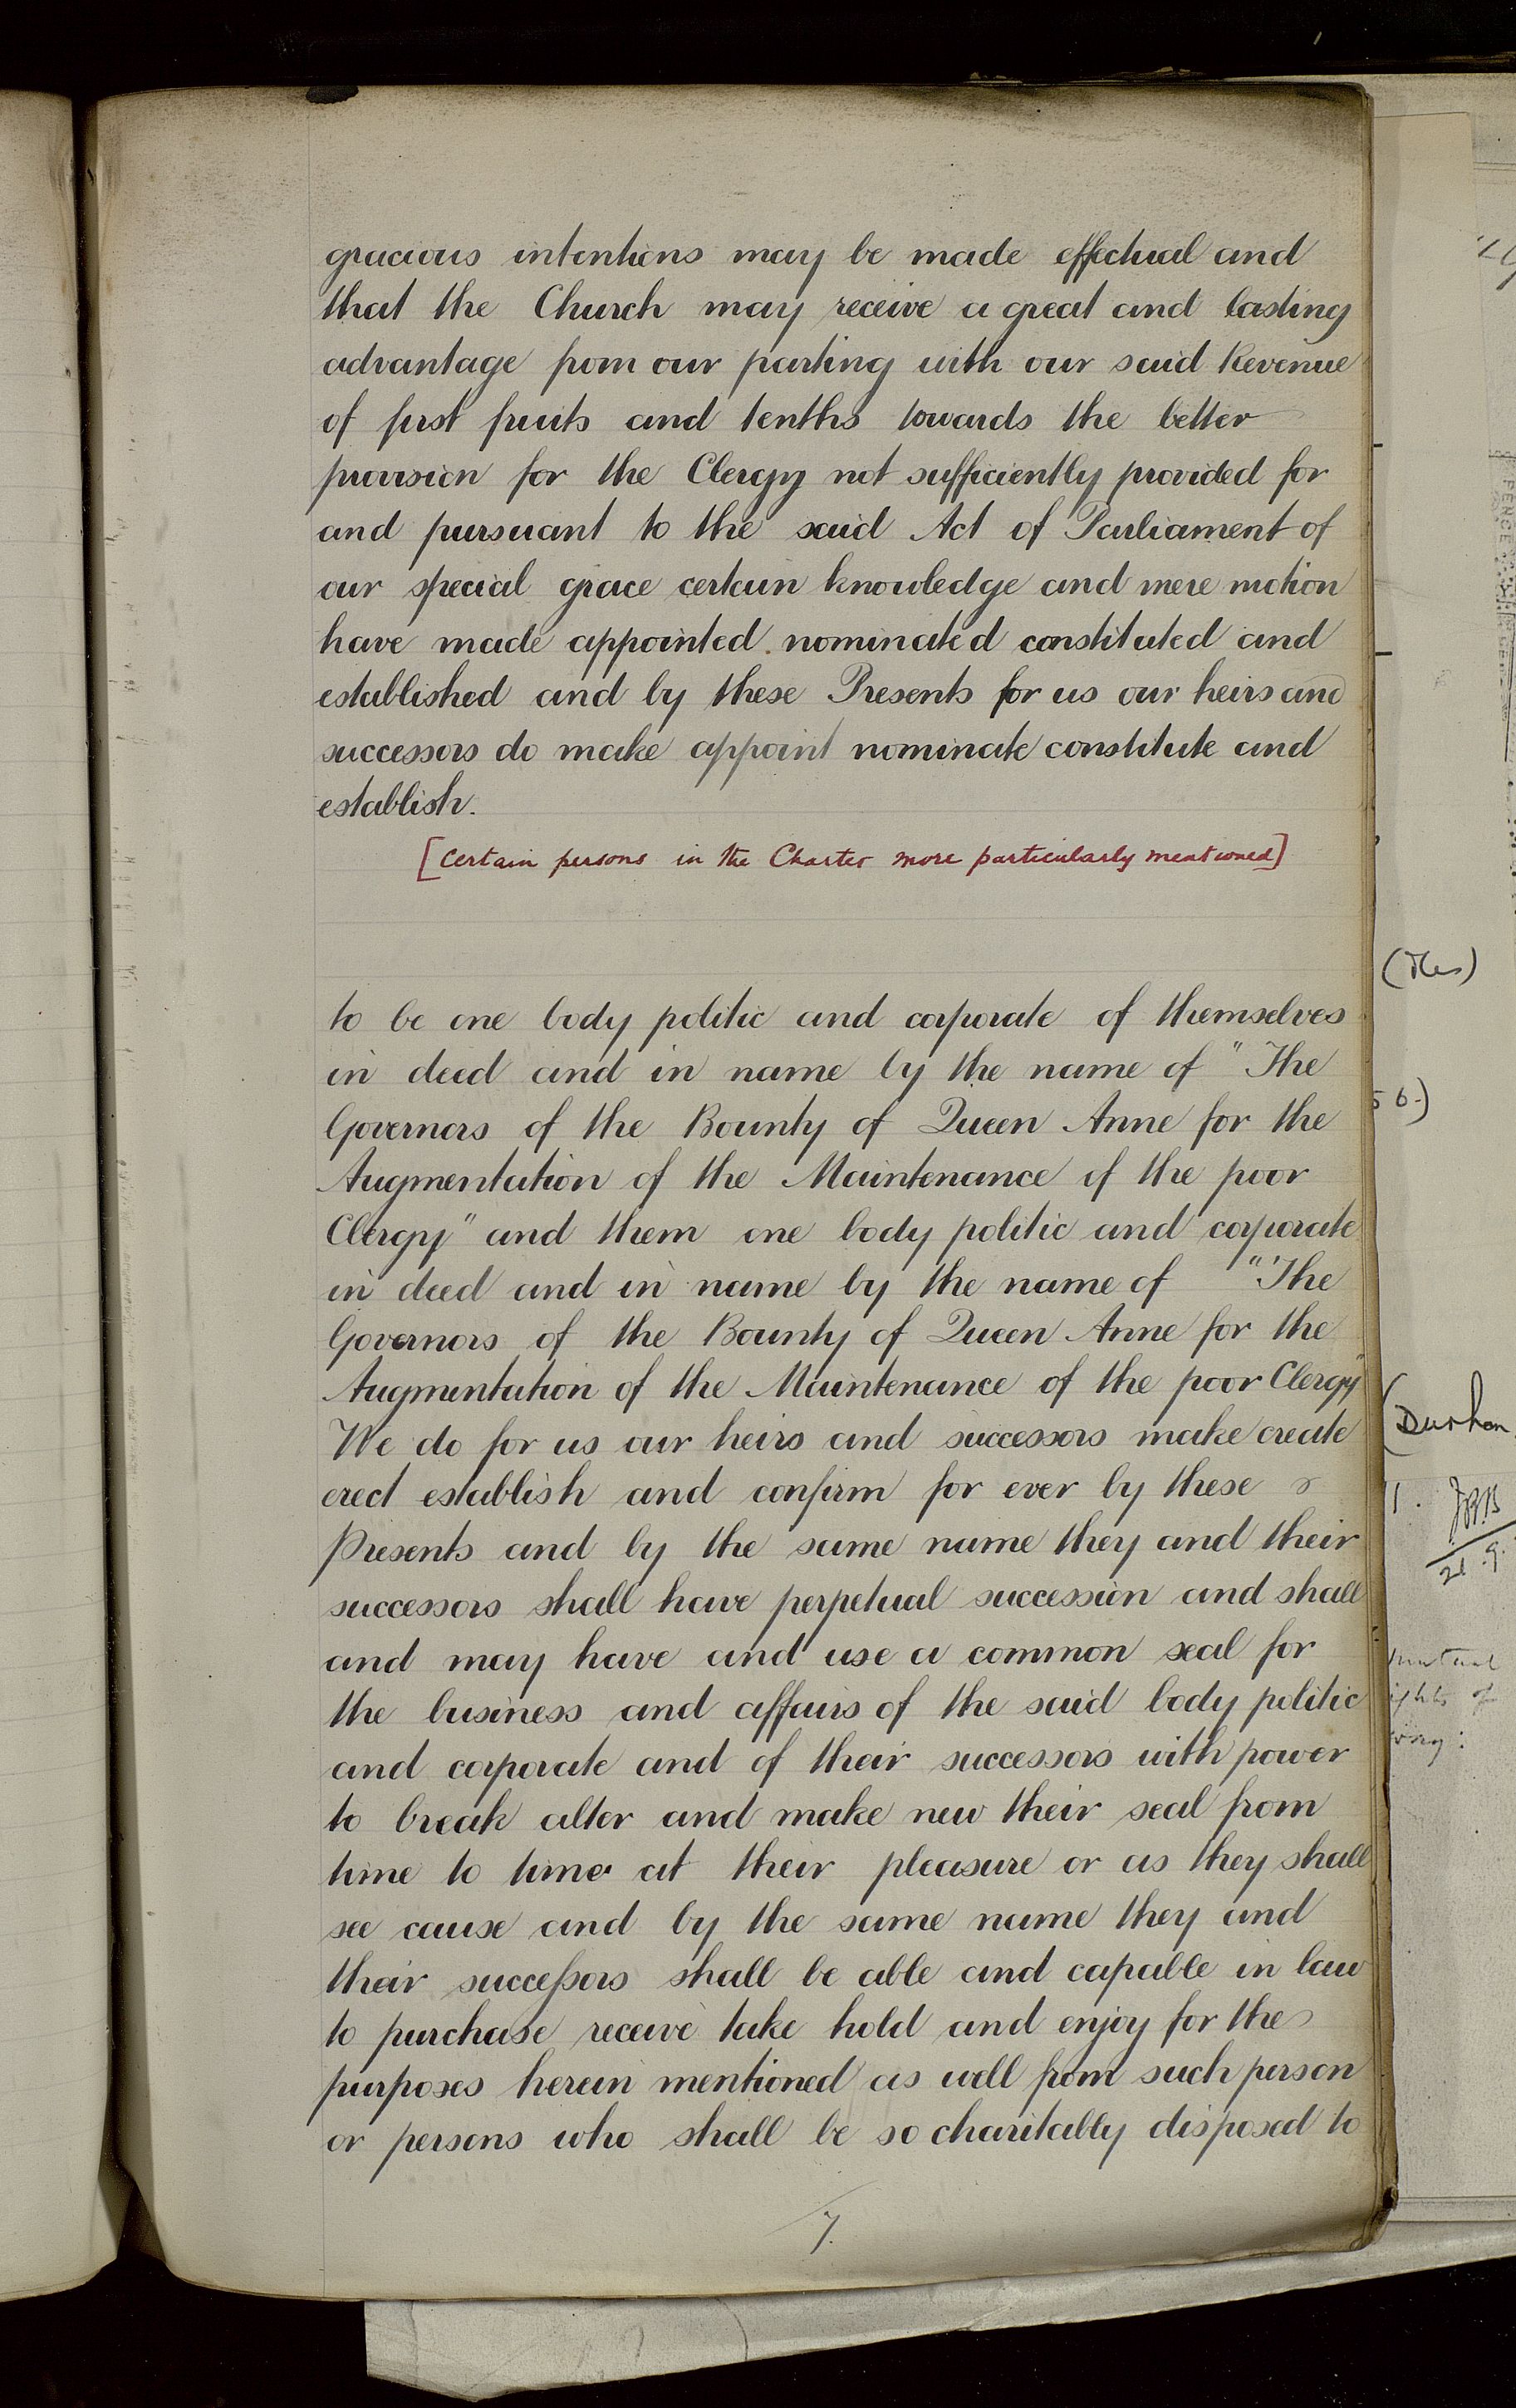 gracious intentions may be made effectual and
that the Church may receive a great and lasting
advantage from our parting with our said Revenue
of first fruits and tenths towards the better
provision for the Clergy not sufficiently provided for
and pursuant to the said Act of Parliament of
our special grace certain knowledge and mere motion
have made appointed nominated constituted and
established and by these Presents for us our heirs and
successors do make appoint nominate constitute and
establish.
[Certain persons in the Charter more particularly mentioned]
to be one body politic and corporate of themselves
in deed and in name by the name of "The
Governors of the Bounty of Queen Anne for the
Augmentation of the Maintenance of the poor
Clergy" and them one body politic and corporate
in deed and in name by the name of "The
Governors of the Bounty of Queen Anne for the
Augmentation of the Maintenance of the poor Clergy"
We do for us our heirs and successors make create
erect establish and confirm for ever by these
Presents and by the same name they and their
successors shall have perpetual succession and shall
and may have and use a common seal for
the business and affairs of the said body politic
and corporate and of their successors with power
to break alter and make new their seal from
time to time at their pleasure or as they shall
see cause and by the same name they and
their successors shall be able and capable in law
to purchase receive take hold and enjoy for the
purposes herein mentioned as well from such person
or persons who shall be so charitably disposed to
7.
PENCE
56.)
(Durham
21.9.
mutual